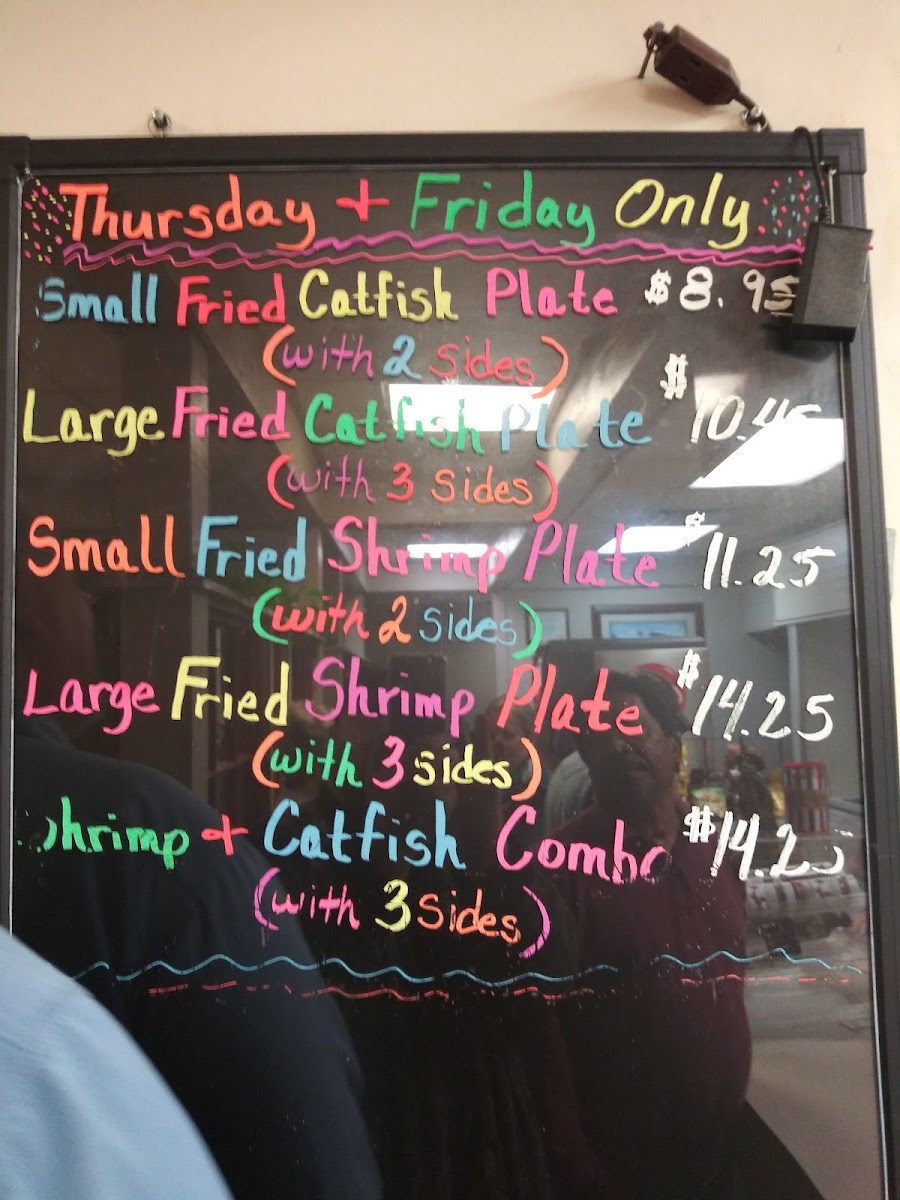 Thursday + Friday Only
Small Fried Catfish Plate $8.95
(with 2 sides)
Large Fried Catfish Plate $10.45
(with 3 sides)
Small Fried Shrimp Plate $11.25
(with 2 sides)
Large Fried Shrimp Plate $14.25
(with 3 sides)
Shrimp + Catfish Combo $14.25
(with 3 sides)